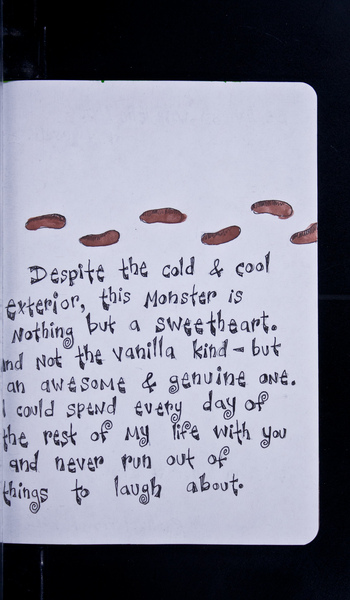 Despite the cold & cool
exterior, this Monster is
Nothing but a sweetheart.
and Not the vanilla kind - but
an awesome & genuine one.
I could spend every day of
the rest of My life with you
and never run out of
things to laugh about.